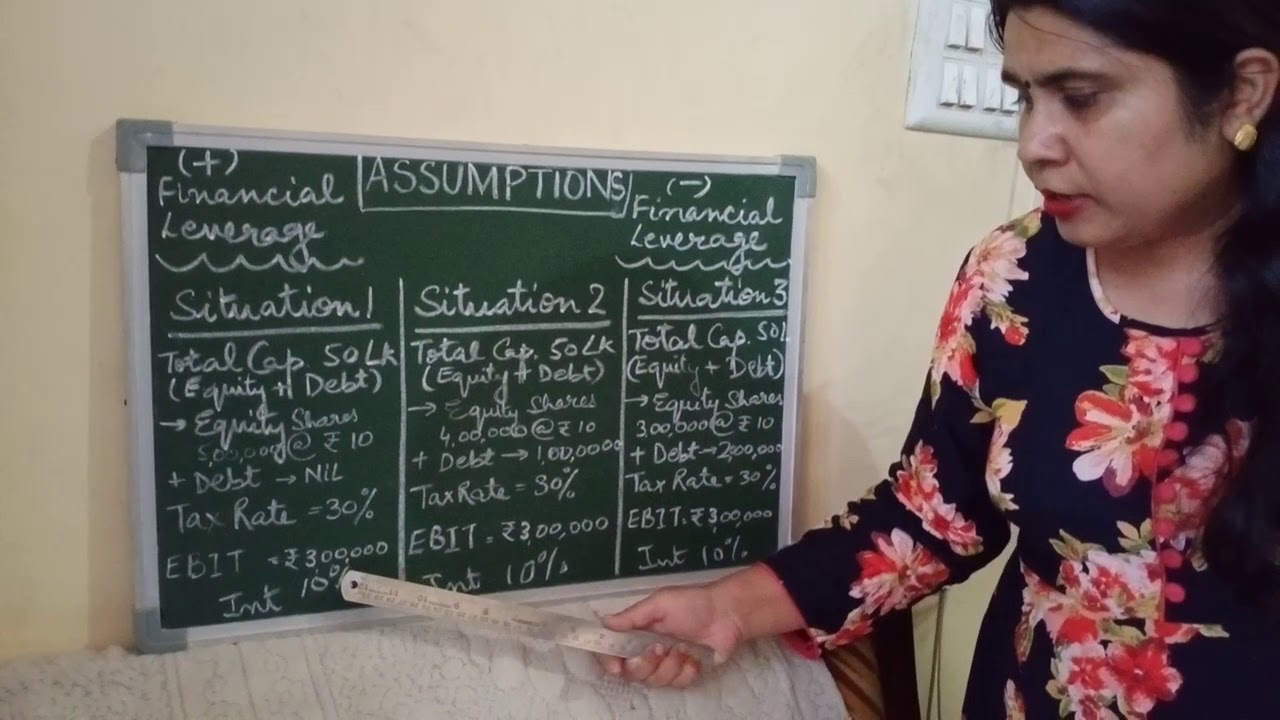 (+)
Financial
Leverage
ASSUMPTIONS
(-)
Financial
Leverage
Situation 1
Total Cap. 50 Lk
(Equity + Debt)
→ Equity Shares
5,00,000 @ ₹ 10
+ Debt → NIL
Tax Rate = 30%
EBIT = ₹3,00,000
Int 10%
Situation 2
Total Cap. 50 Lk
(Equity + Debt)
→ Equity Shares
4,00,000 @ ₹ 10
+ Debt → 1,00,0000
Tax Rate = 30%
EBIT = ₹3,00,000
Int 10%
Situation 3
Total Cap. 50 L
(Equity + Debt)
→ Equity Shares
3,00,000 @ ₹ 10
+ Debt → 2,000,000
Tax Rate = 30%
EBIT = ₹3,00,000
Int 10%